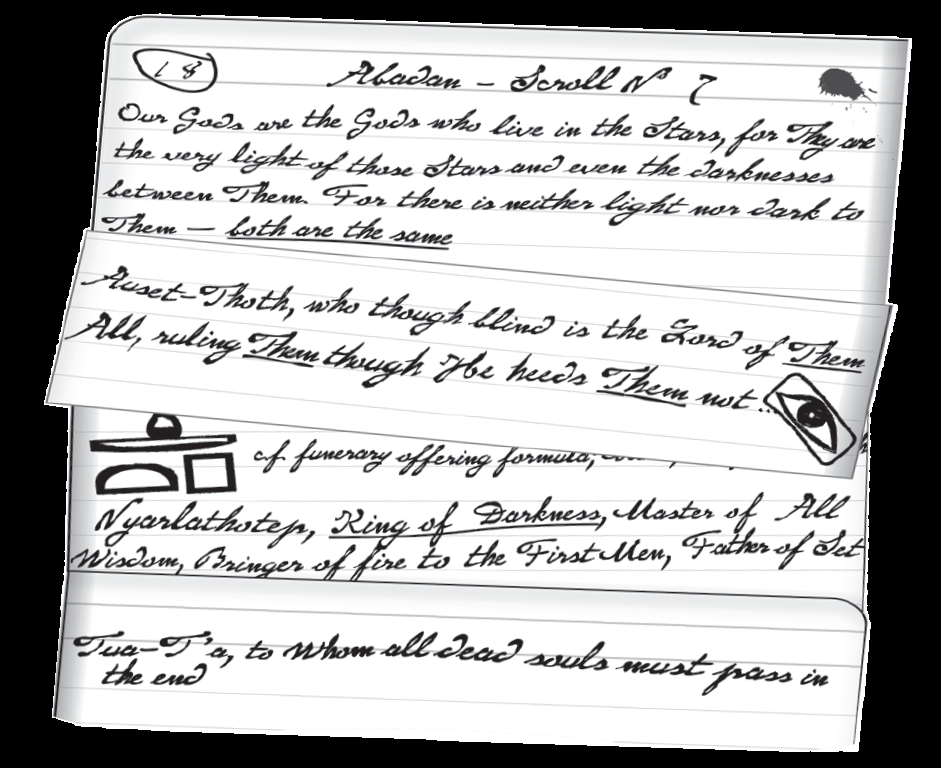 18
Abadan – Scroll Nº 7
Our Gods are the Gods who live in the Stars, for Thy are
the very light of those Stars and even the darknesses
between Them. For there is neither light nor dark to
Them — both are the same
Auset-Thoth, who though blind is the Lord of Them
All, ruling Them though He heeds Them not ...
cf. funerary offering formula,
Nyarlathotep, King of Darkness, Master of All
Wisdom, Bringer of fire to the First Men, Father of Set
Tua-T'a, to whom all dead souls must pass in
the end